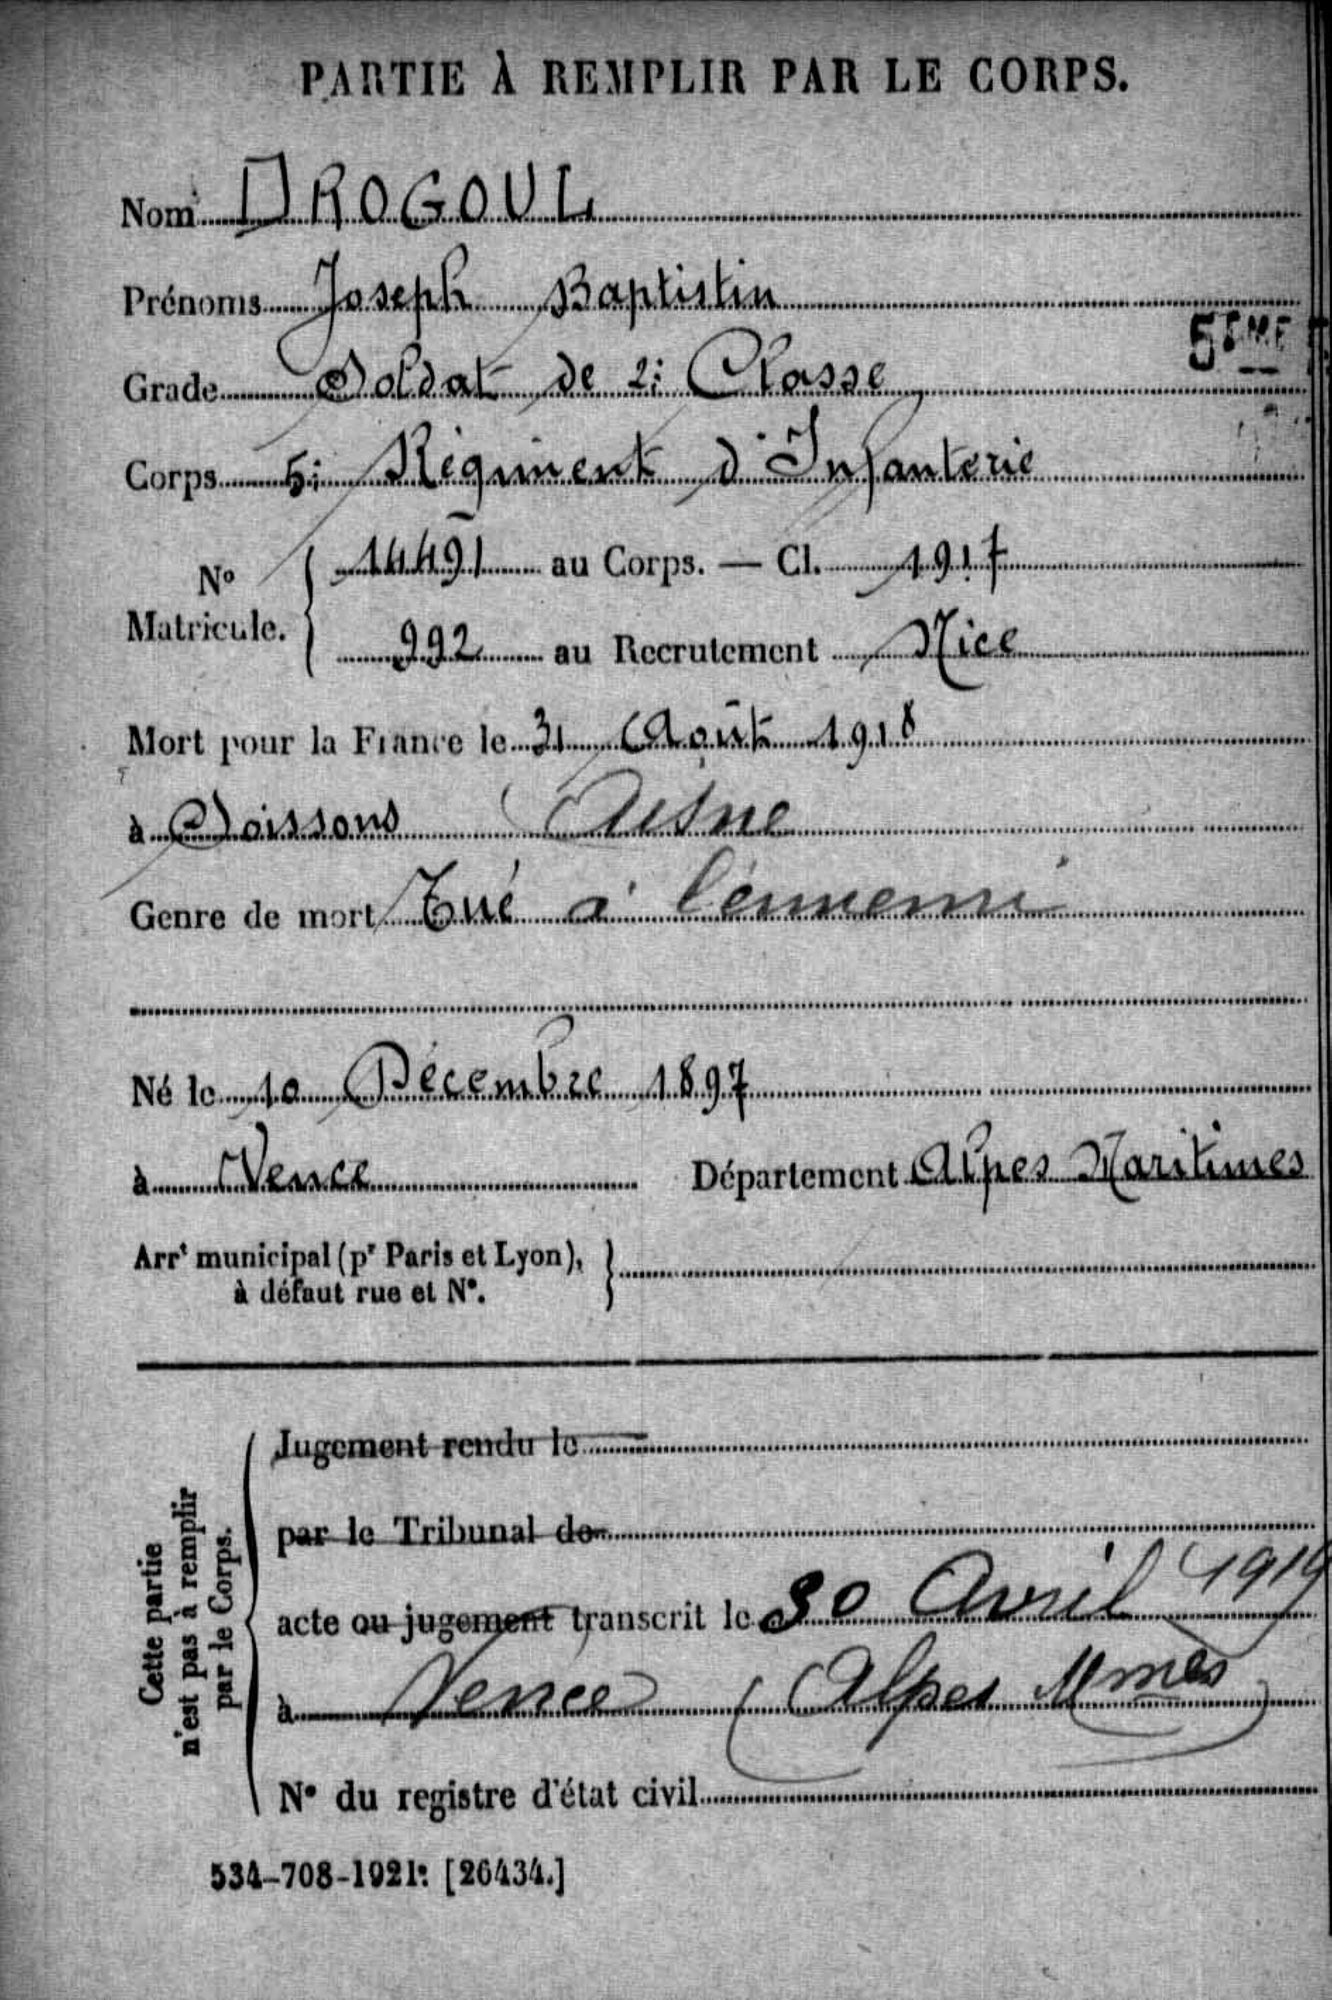 PARTIE À REMPLIR PAR LE CORPS.
Nom DROGOUL
Prénoms Joseph Baptistin
5EME
Grade Soldat de 2e Classe
Corps 5e Régiment d'Infanterie
No Matricule. 14491 au Corps. — Cl. 1917
992 au Recrutement Nice
Mort pour la France le 31 Août 1918
à Soissons Aisne
Genre de mort Tué à l'ennemi
Né le 10 Décembre 1897
à Vence Département Alpes Maritimes
Arrt municipal (pr Paris et Lyon),
à défaut rue et N°.
Cette partie
n'est pas à remplir
par le Corps.
Jugement rendu le
par le Tribunal de
acte ou jugement transcrit le 30 Avril 1919
à Vence (Alpes Mmes)
N° du registre d'état civil
534-708-1921. [26434.]